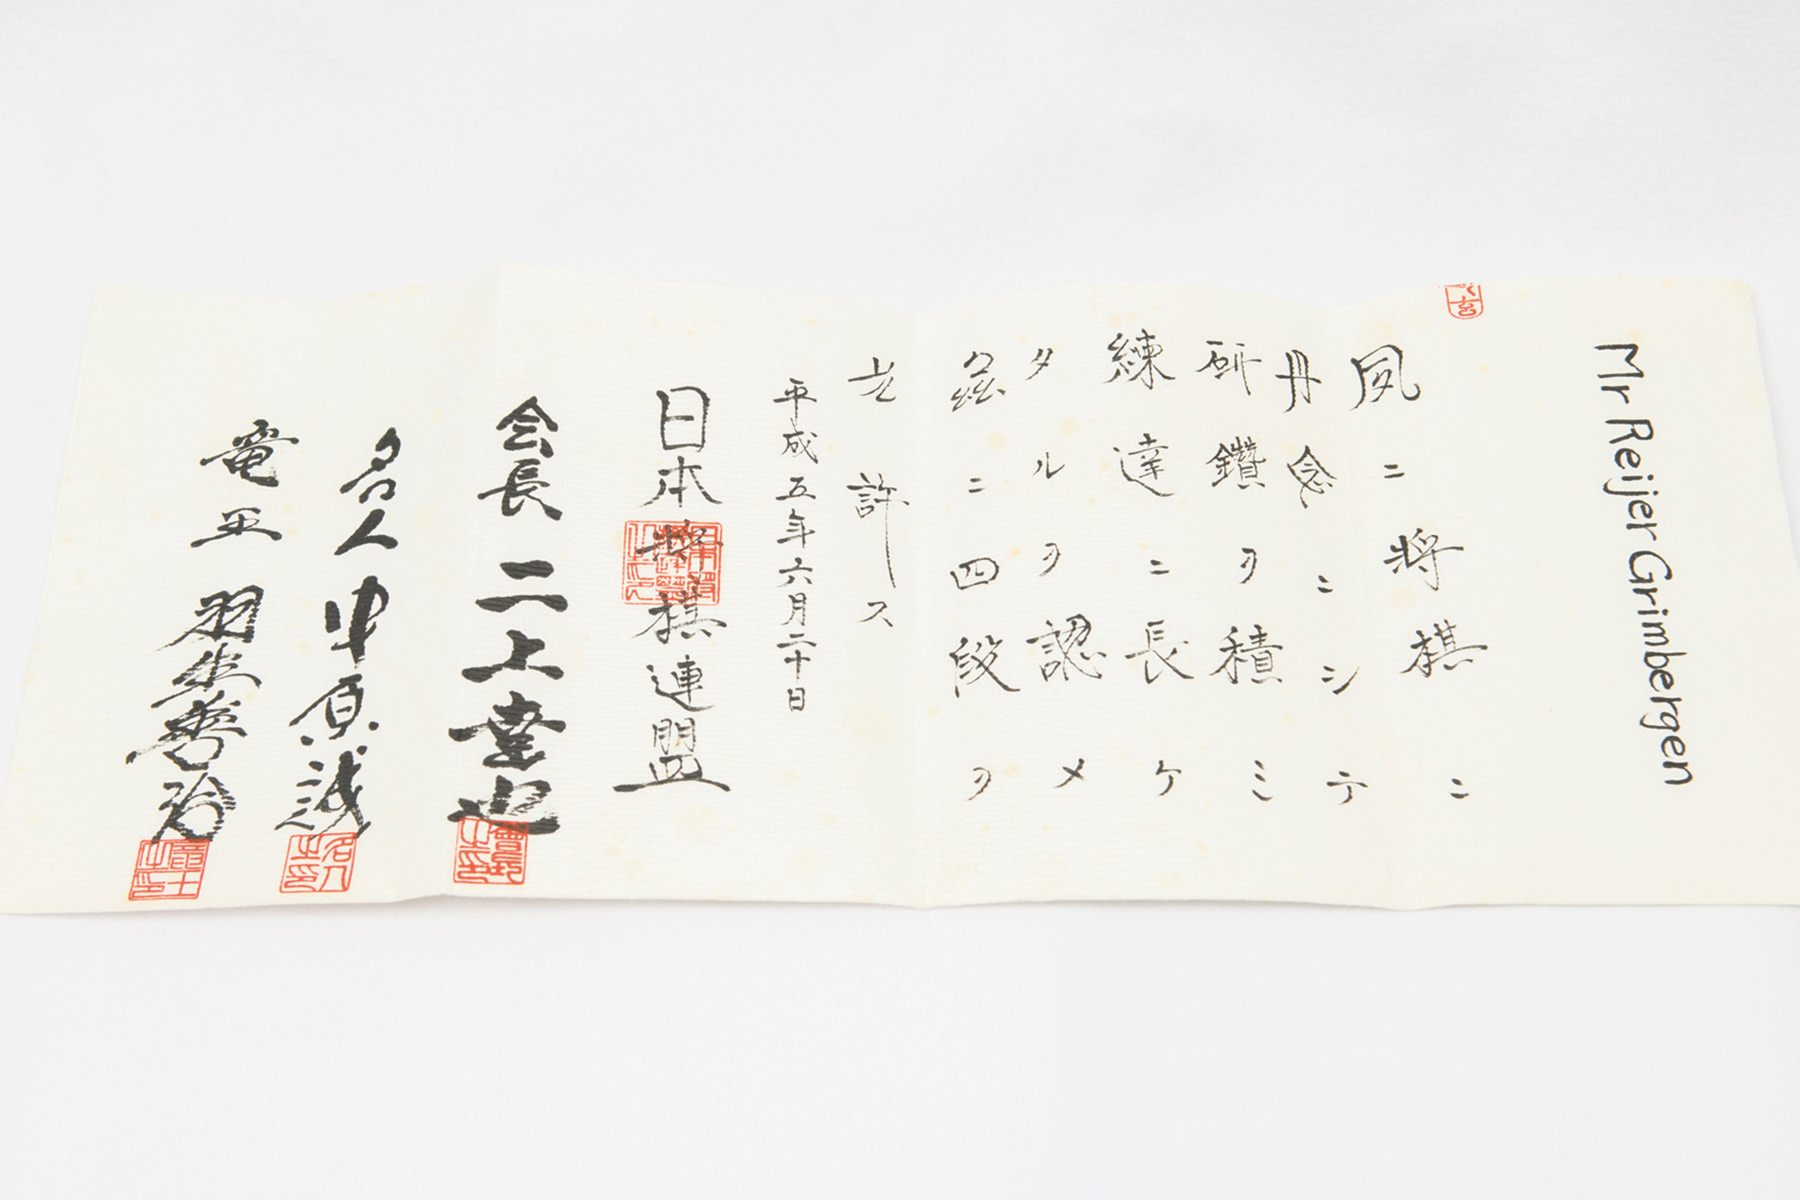 Mr Reijer Grimbergen
夙ニ将棋ニ
丹念ニシテ
研鑽ヲ積ミ
練達ニ長ケ
タルヲ認メ
茲ニ四段ヲ
允許ス
平成五年六月二十日
日本将棋連盟
会長 二上達也
名人 中原誠
竜王 羽生善治